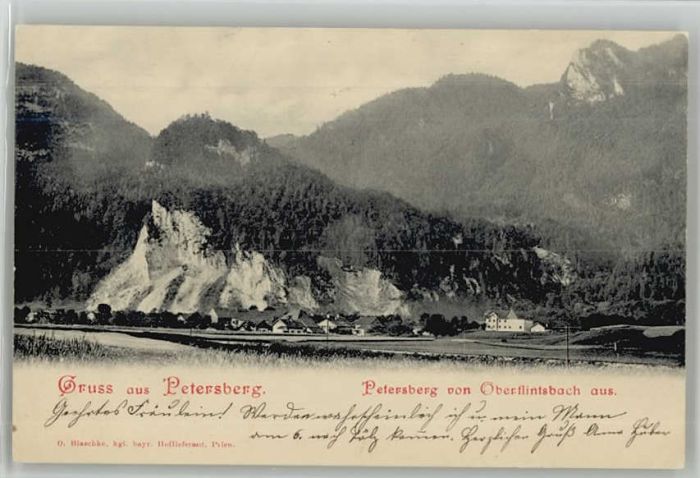 Gruss aus Petersberg.
Petersberg von Oberflintsbach aus.
Geehrtes Fräulein! Werden wahrscheinlich ich u. mein Mann
am 6. nach Tölz kommen. Herzlichen Gruß Anna Huber
O. Blaschke, kgl. bayr. Hoflieferant, Prien.